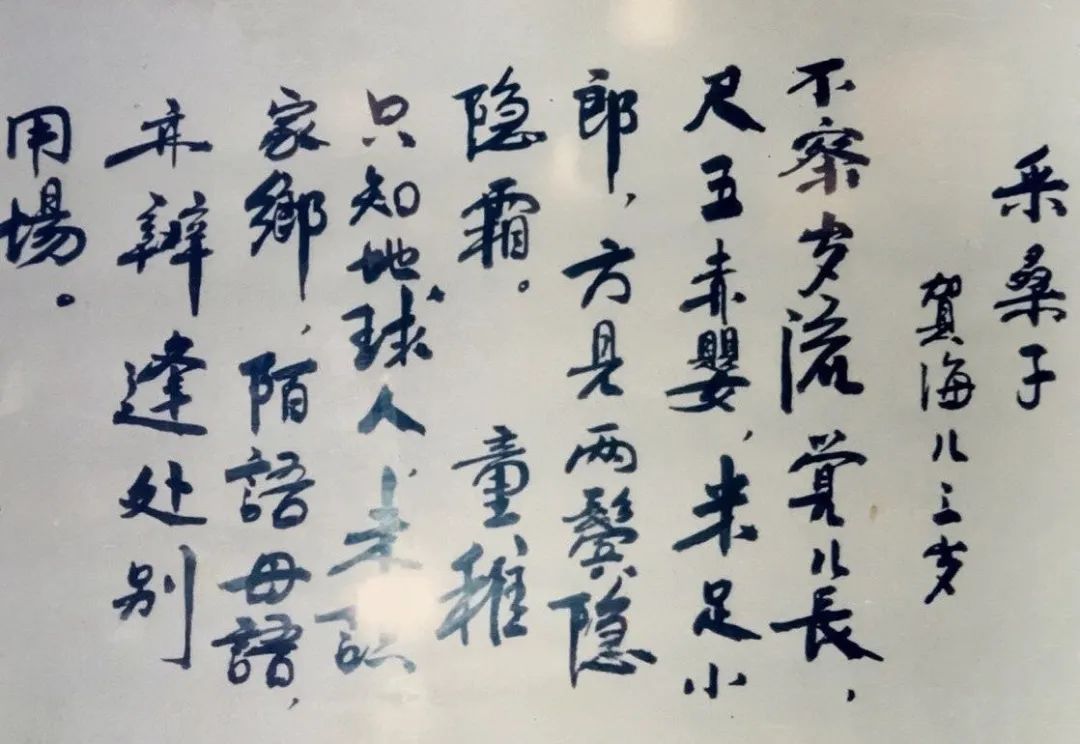 采桑子
賀海儿三岁
不察岁流觉儿長，
尺五赤嬰，米足小
郎，方見两鬓隐
隐霜。 童稚
只知地球人，未
家鄉，陌語母語，
亦辨逢处别
用場。